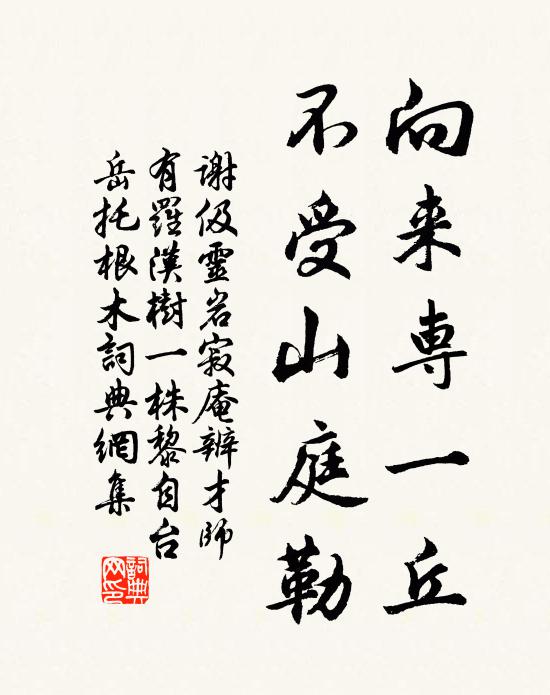 向来専一丘
不受山庭勒
谢伋靈岩寂庵辨才師
有羅漢樹一株黎自台
岳托根木詞典網集
詞典
网印